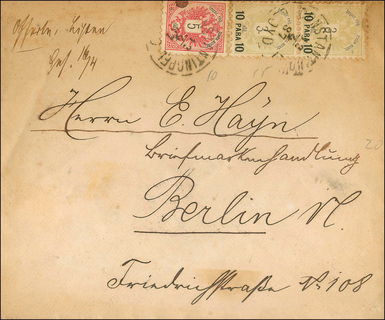 10 PARA 10
10 PARA 10
5
3
CONSTANTINOPEL
Herrn E. Hayn
Briefmarkenhandlung
Berlin N.
Friedrichstraße No 108